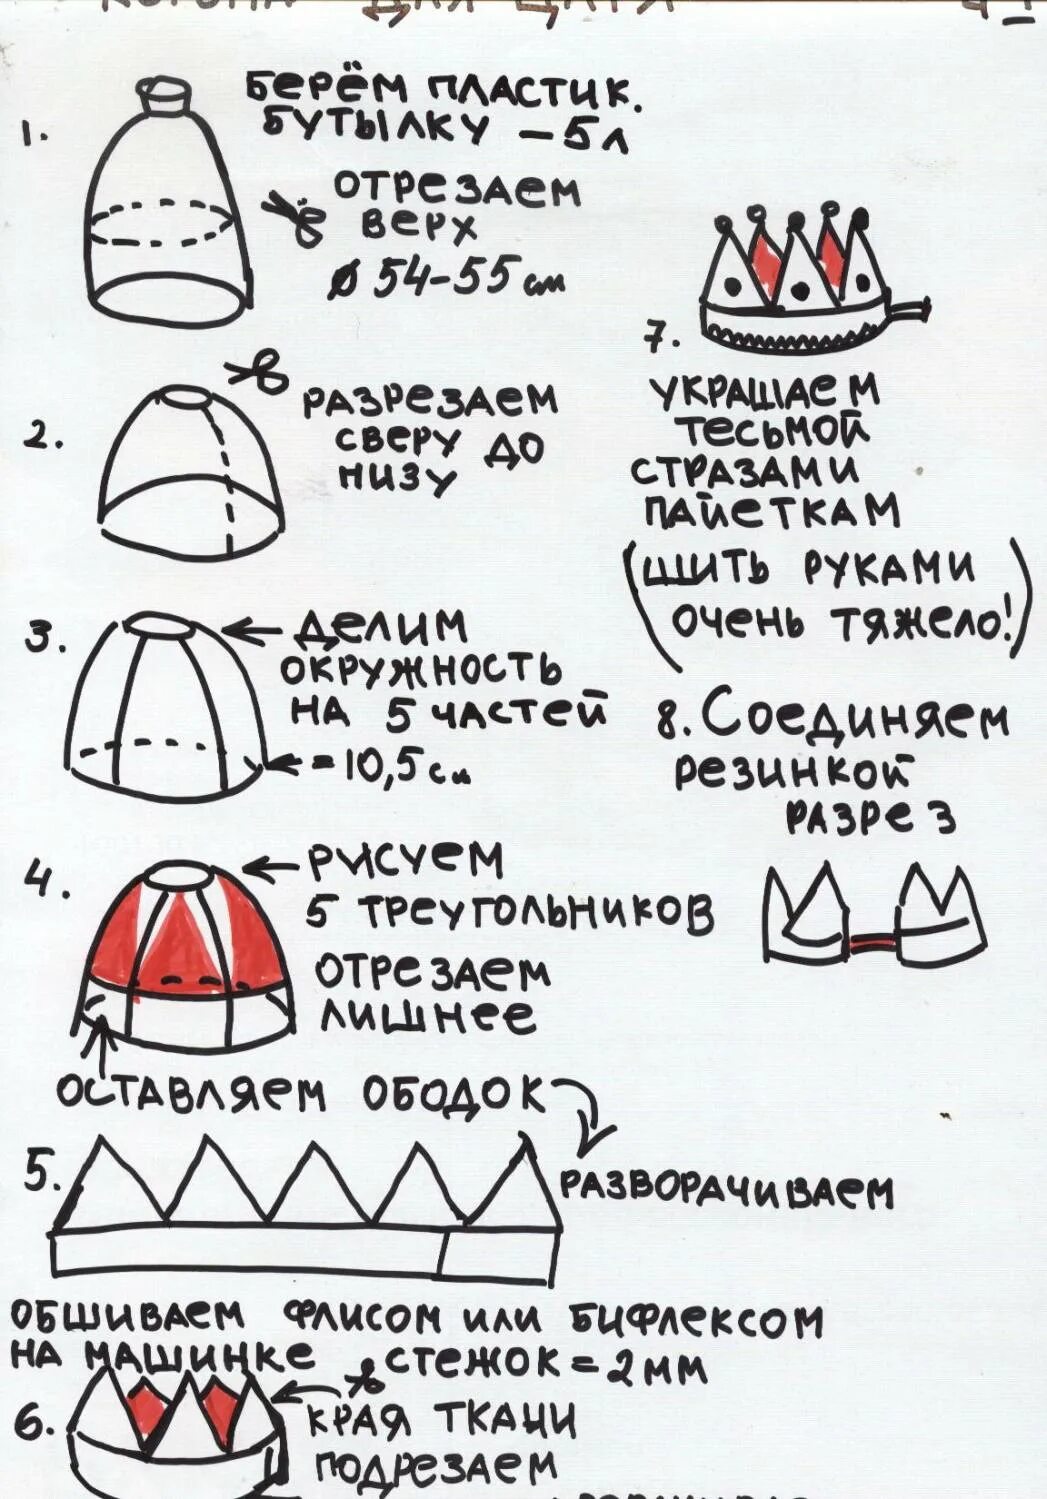 КОРОНА ДЛЯ ЦАРЯ
1.
БЕРЁМ ПЛАСТИК.
БУТЫЛКУ – 5 Л
ОТРЕЗАЕМ
ВЕРХ
Ø 54-55 см
2.
РАЗРЕЗАЕМ
СВЕРУ ДО
НИЗУ
3.
ДЕЛИМ
ОКРУЖНОСТЬ
НА 5 ЧАСТЕЙ
= 10,5 см
4.
РИСУЕМ
5 ТРЕУГОЛЬНИКОВ
ОТРЕЗАЕМ
ЛИШНЕЕ
ОСТАВЛЯЕМ ОБОДОК
5.
РАЗВОРАЧИВАЕМ
ОБШИВАЕМ ФЛИСОМ ИЛИ БИФЛЕКСОМ
НА МАШИНКЕ СТЕЖОК = 2 ММ
6.
КРАЯ ТКАНИ
ПОДРЕЗАЕМ
7.
УКРАШАЕМ
ТЕСЬМОЙ
СТРАЗАМИ
ПАЙЕТКАМ
(ШИТЬ РУКАМИ
ОЧЕНЬ ТЯЖЕЛО!)
8. СОЕДИНЯЕМ
РЕЗИНКОЙ
РАЗРЕЗ